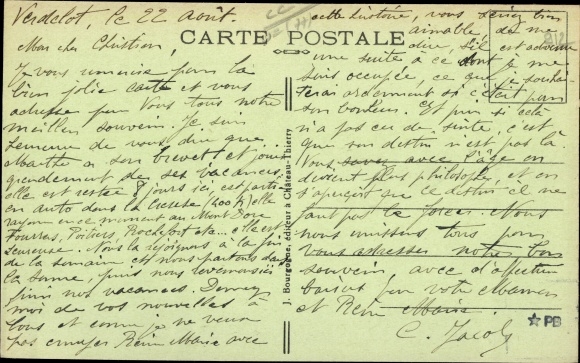 Verdelot, le 22 août.
Mon cher Christian,
Je vous remercie pour la
bien jolie carte et vous
adresse pour vous tous notre
meilleur souvenir. Je suis
heureuse de vous dire que
Marthe a son brevet et jouit
grandement de ses vacances.
elle est restée 8 jours ici, est partie
en auto dans la Creuse (400 K) elle
rayonne en ce moment au Mont Dore
Fourras, Poitiers, Rochefort etc... elle est
heureuse. Nous la rejoignons à la fin
de la semaine et nous partons dans
la Somme, puis nous reviendrons ici
finir nos vacances. Donnez
moi de vos nouvelles à
tous et comme je ne veux
pas ennuyer Reine Marie avec
CARTE POSTALE
J. Bourgogne, éditeur à Château-Thierry
cette histoire, vous seriez bien
aimable, de me
dire, s'il est advenu
une suite à ce dont je me
suis occupée, ce que je souhai-
terai ardemment si c'était pour
son bonheur. Et puis si cela
n'a pas eu de suite, c'est
que son destin n'est pas là.
Vous savez avec l'âge on
devient plus philosophe et on
s'aperçoit que ce destin il ne
faut pas le forcer. Nous
nous unissons tous pour
vous adresser notre bon
souvenir avec d'affectueux
baisers pour votre Maman
et Reine Marie.
C. Jacob
★ PB